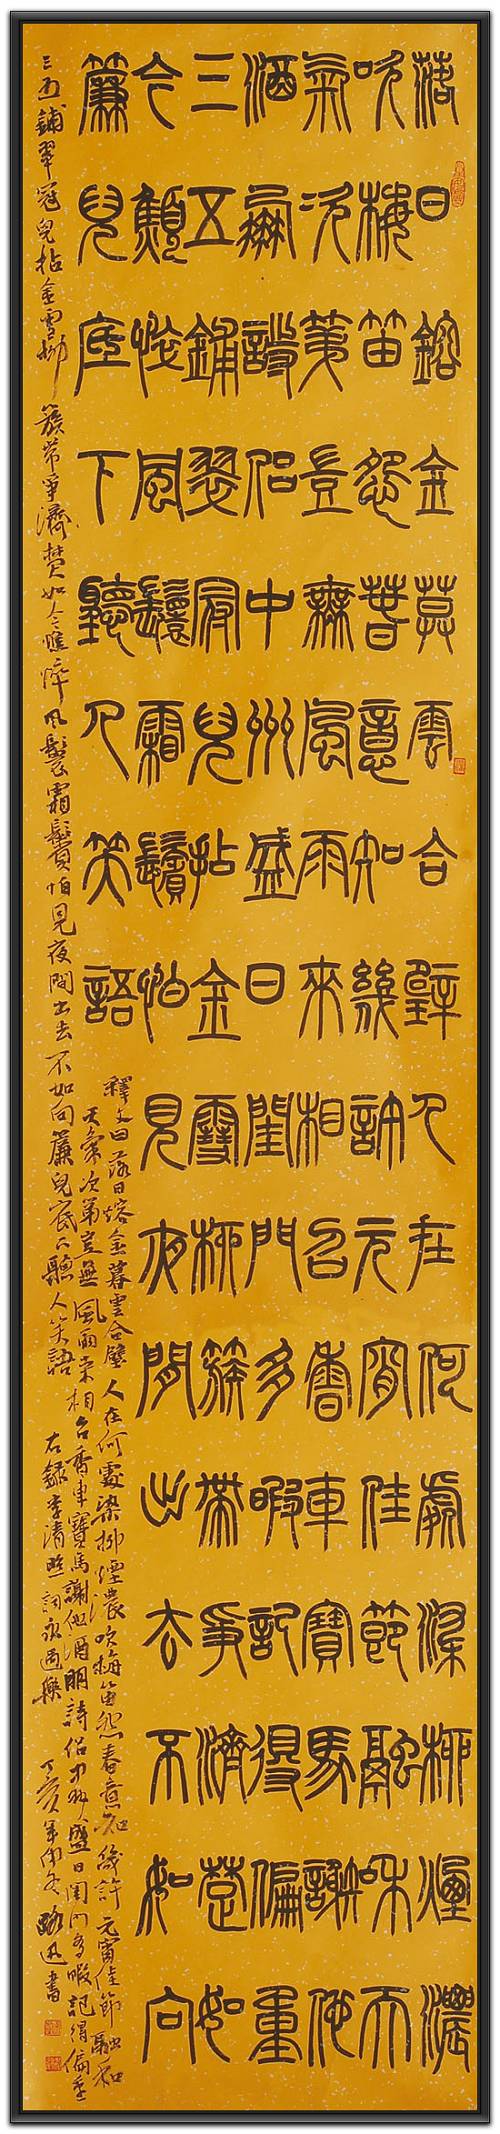 落日鎔金莫雲合璧人在何處染柳煙濃
吹梅笛怨春意知幾許元宵佳節融和天
氣次第豈無風雨來相召香車寶馬謝他
酒朋詩侶中州盛日閨門多暇記得偏重
三五鋪翠冠兒拈金雪柳簇帶爭濟楚如
今顦悴風鬟霜鬢怕見夜間出去不如向
簾兒底下聽人笑語
釋文曰落日熔金暮雲合璧人在何處染柳煙濃吹梅笛怨春意知幾許元宵佳節融和
天氣次第豈無風雨來相召香車寶馬謝他酒朋詩侶中州盛日閨門多暇記得偏重
三五鋪翠冠兒拈金雪柳簇帶爭濟楚如今憔悴風鬟霜鬢怕見夜間出去不如向簾兒底下聽人笑語 右錄李清照詞永遇樂 丁亥年冬 路迅書